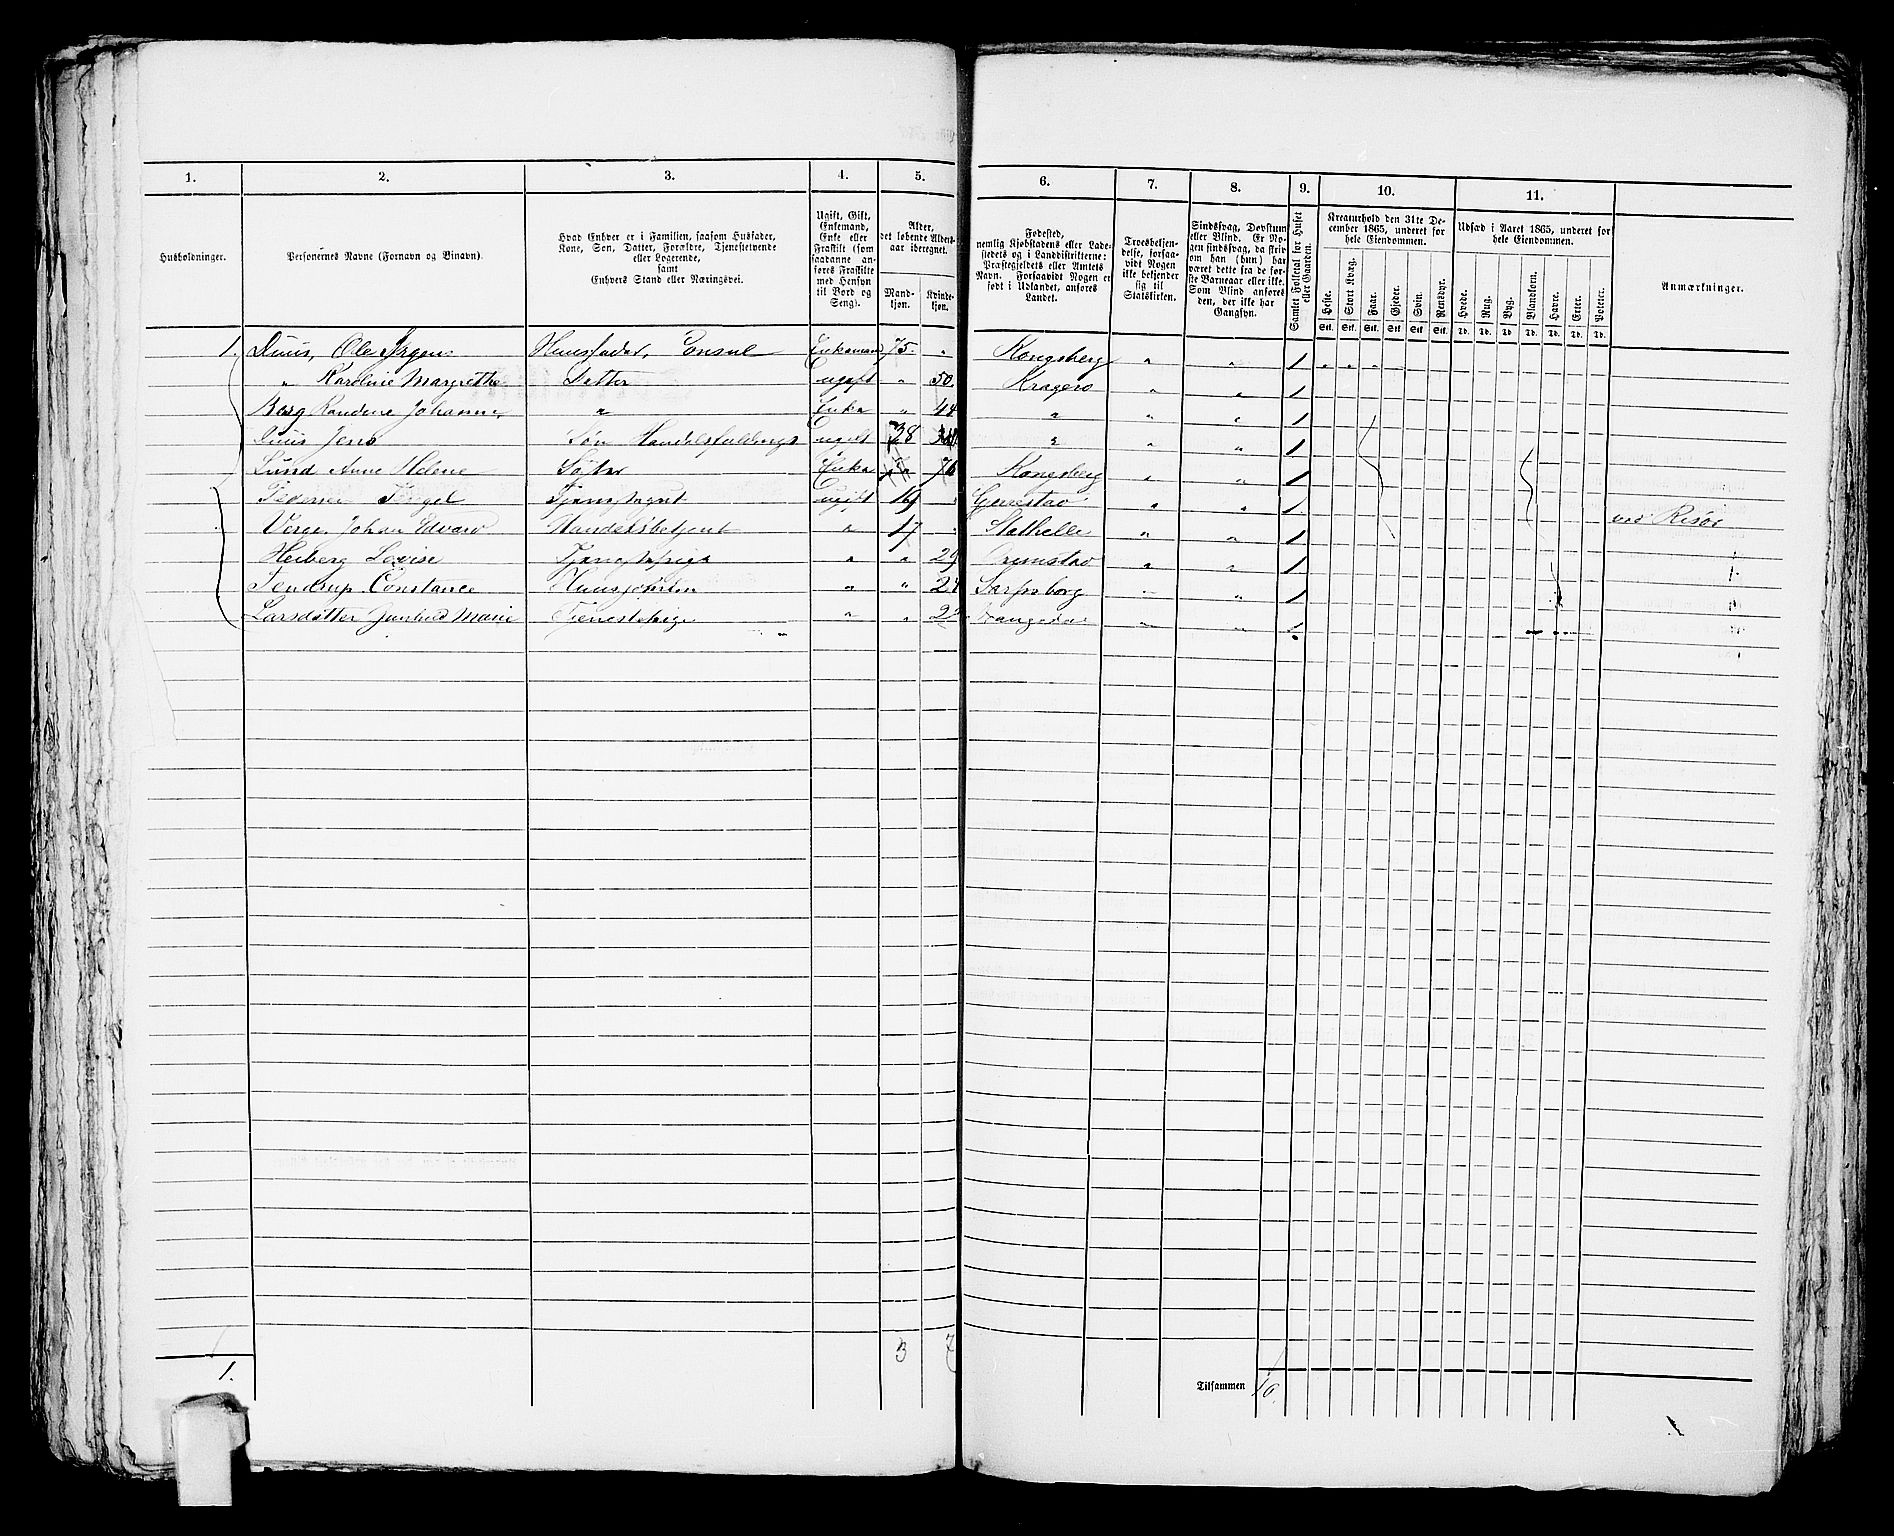 1. 2. 3. 4. 5. 6. 7. 8. 9. 10. 11.
Husholdninger.
Personernes Navne (Fornavn og Binavn).
Hvad Enhver er i Familien, saasom Husfader,
Kone, Søn, Datter, Forældre, Tjenestetyende
eller Logerende,
samt
Enhvers Stand eller Næringsvei.
Ugift, Gift,
Enkemand,
Enke eller
Fraskilt (som
saadanne an-
føres Fraskilte
med Hensyn
til Bord og
Seng).
Alder,
det løbende Alders-
aar iberegnet.
Mand-
kjøn.
Kvinde-
kjøn.
Fødested,
nemlig Kjøbstadens eller Lade-
stedets og i Landdistrikterne:
Præstegjeldets eller Amtets
Navn. Forsaavidt Nogen er
født i Udlandet, anføres
Landet.
Troesbekjen-
delse, forsaa-
vidt Nogen
ikke bekjender
sig til
Statskirken.
Sindssvag, Døvstum
eller Blind. Er No-
gen sindssvag, da skriv
om han (hun) har
været dette fra de før-
ste Barneaar eller ikke.
Som Blind anføres
den, der ikke har
Gangsyn.
Samlet Folketal for Huset
eller Gaarden.
Kreaturhold den 31te De-
cember 1865, underet for
hele Eiendommen.
Heste. Stort Kvæg. Faar. Gjeder. Svin. Rensdyr.
Stk. Stk. Stk. Stk. Stk. Stk.
Udsæd i Aaret 1865, underet for
hele Eiendommen.
Hvede. Rug. Byg. Blandkorn. Havre. Erter. Poteter.
Td. Td. Td. Td. Td. Td. Td.
Anmærkninger.
1. Duus, Ole Jørgen Huusfader, Consul Enkemand 75. " Kongsberg " " 1
" Karoline Margrethe Datter ugift " 50 Kragerø " " 1
Berg Randine Johanne " Enke " 44 " " " 1
Duus Jens Søn ugift 38 " " " 1
Lund Anne Helene Søster Enke 76 Kongsberg " " 1
ugift " " 1
Johan Edvard Handelsbetjent " 17 Stathelle " " 1 ved Risør
Heiberg Lovise " " 29 " " 1
Constance " " 24 Sarpsborg " 1
Larsdatter Gunhild Marie Tjenestepige " " " " 1
1. 3 7
Tilsammen 10